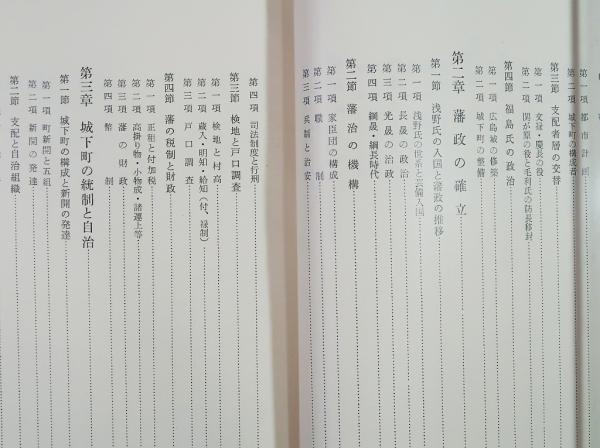 第一項 都市計画
第二項 城下町の構成者
第三節 支配者層の交替
第一項 文禄・慶長の役
第二項 関が原の役と毛利氏の防長移封
第四節 福島氏の政治
第一項 広島城の修築
第二項 城下町の整備
第二章 藩政の確立
第一節 浅野氏の入国と藩政の推移
第一項 浅野氏の世系と芸備入国
第二項 長晟の政治
第三項 光晟の治政
第四項 綱晟・綱長時代
第二節 藩治の機構
第一項 家臣団の構成
第二項 職制
第三項 兵制と治安
第四項 司法制度と行刑
第三節 検地と戸口調査
第一項 検地と村高
第二項 蔵入・明知・給知(付、禄制)
第三項 戸口調査
第四節 藩の税制と財政
第一項 正租と付加税
第二項 高掛り物・小物成・諸運上等
第三項 藩の財政
第四項 幣制
第三章 城下町の統制と自治
第一節 城下町の構成と新開の発達
第一項 町新開と五組
第二項 新開の発達
第二節 支配と自治組織